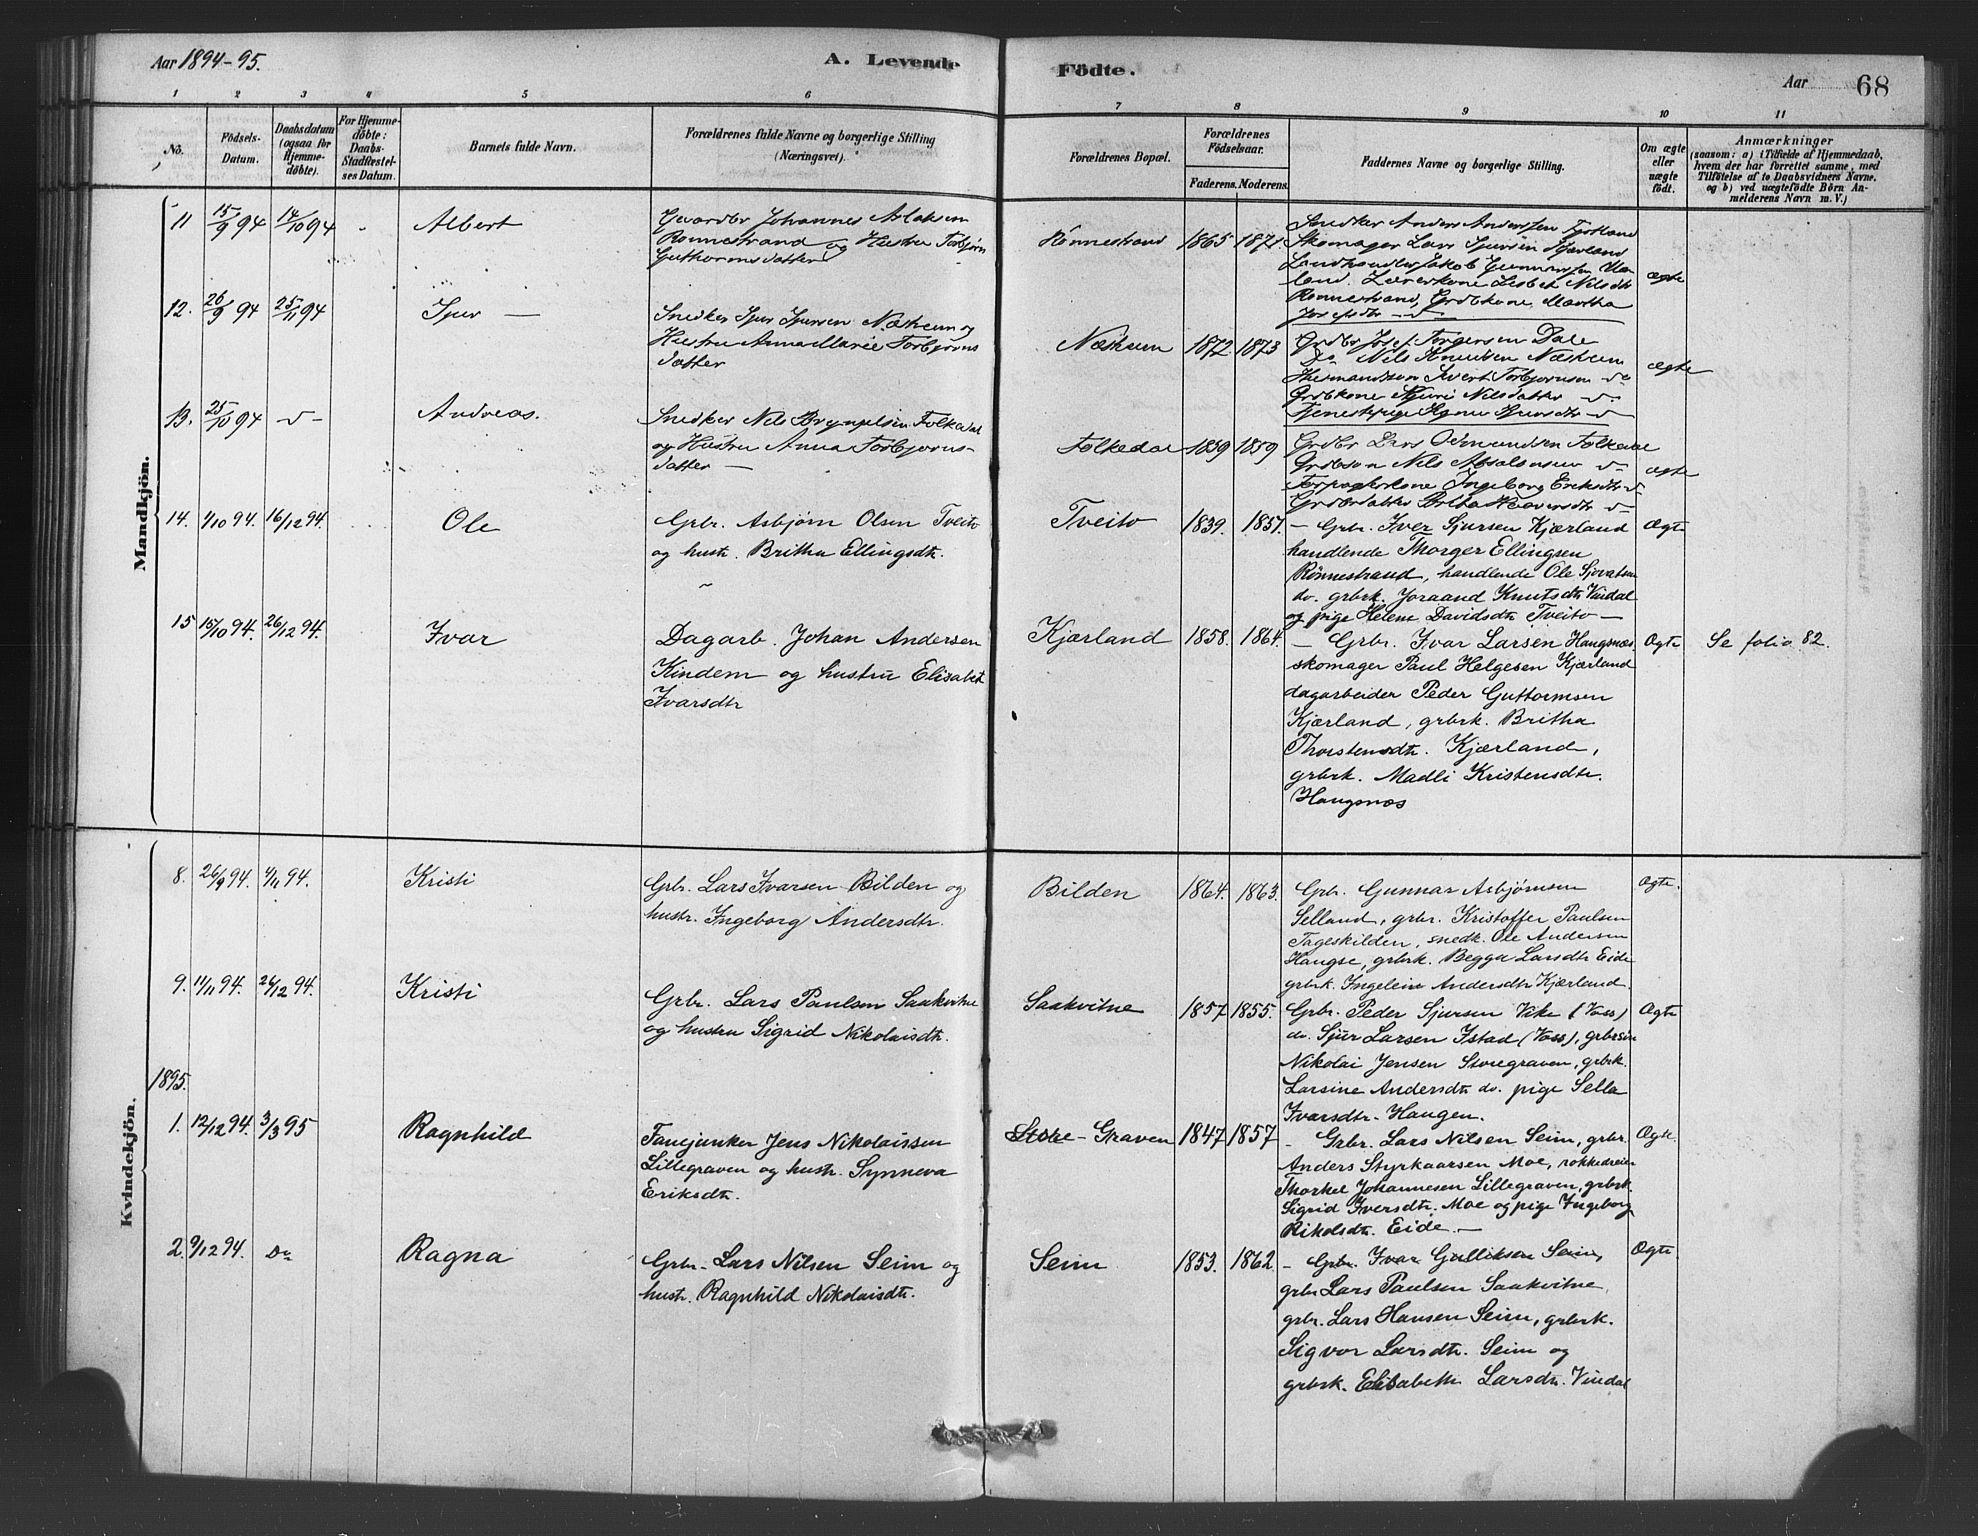 Aar 1894-95.
A. Levende
Födte.
Aar
68
1 2 3 4 5 6 7 8 9 10 11
No.
Födsels-
Datum.
Daabsdatum
(ogsaa for
Hjemme-
döbte).
For Hjemme-
döbte:
Daabs-
Stadfæstel-
ses Datum.
Barnets fulde Navn.
Forældrenes fulde Navne og borgerlige Stilling
(Næringsvei).
Forældrenes Bopæl.
Forældrenes
Födselsaar.
Faderens. Moderens.
Faddernes Navne og borgerlige Stilling.
Om ægte
eller
uægte
födt.
Anmærkninger
(saasom: a) i Tilfælde af Hjemmedaab,
hvem der har forrettet samme, med
Tilföielse af to Daabsvidners Navne,
og b) ved uægtefödte Börn An-
melderens Navn m. V.)
Mandkjön.
11 15/9 94 14/10 94 Albert
Gaardbr Johannes Aslaksen
Rønnestrand og Hustru Torbjørn
Guthormsdatter
Rønnestrand 1865 1871
Snedker Anders Anderssen
Skomager Lars Sjursen Kjærland
Landhandler Jakob Gunnarssen
Lærerkone Lisbet Nilsdtr
Rønnestrand, Grdbkone Martha
Josefsdtr
ægte
12. 26/9 94 25/11 94 Sjur
Snedker Sjur Sjursen Næsheim og
Hustru Anna Marie Torbjørns
datter
Næsheim 1872 1873
Grdbr Josef Torgersen Dale
Do Nils Knudsen Næsheim
Torbjørnsen do
Grdbkone Sjuri Nilsdatter do
Tjenestepige Agna Sjursdtr do
ægte
13. 25/10 94 do Andreas.
Snedker Nils Brynjelsen Folkedal
og Hustru Anna Torbjørns-
datter
Folkedal 1839 1859
Grdbr Lars Odmundsen Folkedal
Grdbson Nils Absalonsen do
Ingeborg Eriksdtr do
Grdbrdatter Britha do
ægte
14. 1/10 94. 16/12 94. Ole
Grbr. Asbjørn Olsen Tveito
og hustr. Britha Ellingsdtr.
Tveito 1839. 1857.
- Grbr. Iver Sjursen Kjærland
handlende Thorger Ellingsen
Rönnestrand, handlende Ole Sjovatsen
do. grbrk. Joraand Knutsdtr Vindal
og pige Helene Davidsdtr Tveito -
Ægte
15 15/10 94. 26/12 94. Ivar
Dagarb. Johan Andersen
Kindem og hustru Elisabet
Ivarsdtr
Kjærland 1858. 1864.
- Grbr. Ivar Larsen Haugsnæs
skomager Paul Helgesen Kjærland
dagarbeider Peder Guttormsen
Kjærland, grbrk. Britha
Thorstensdtr. Kjærland,
grbrk. Madli Kristensdtr.
Haugsnæs
Ægte Se folio 82.
Kvindekjön.
8. 26/9 94. 4/11 94. Kristi
Grbr. Lars Ivarsen Bilden og
hustr. Ingeborg Andersdtr.
Bilden 1864. 1863.
Grbr. Gunnar Asbjørnsen
Selland, grbr. Kristoffer Paulsen
Tageskilden, snedk. Ole Andersen
Haugse, grbrk. Begga Larsdtr Eide
grbrk. Ingeleiv Andersdtr Kjærland
Ægte.
9. 11/11 94. 26/12 94. Kristi
Grbr. Lars Paulsen Saakvitne
og hustru Sigrid Nikolaisdtr.
Saakvitne 1857 1855.
Grbr. Peder Sjursen Vike (Voss)
do. Sjur Larsen Istad (Voss), grbrsön
Nikolai Jensen Storegraven, grbrk.
Larsine Andersdtr do. pige Sella
Ivarsdtr. Haugen.
Ægte
1895.
1. 12/12 94. 3/3 95 Ragnhild
Fanejunker Jens Nikolaissen
Lillegraven og hustr. Synneva
Eriksdtr.
Store-Graven 1847 1857
- Grbr. Lars Nilsen Seim, grbr.
Anders Styrkaarsen Moe, rokkedreier
Thorkel Johannesen Lillegraven, grbrk.
Sigrid Iversdtr. Moe og pige Ingeborg
Rikolsdtr. Eide. -
Ægte.
2. 9/12 94. Do Ragna
Grbr. Lars Nilsen Seim og
hustr. Ragnhild Nikolaisdtr.
Seim 1853. 1862.
- Grbr. Ivar Gulliksen Seim,
grbr Lars Paulsen Saakvitne,
grbr. Lars Hansen Seim, grbrk.
Sigvor Larsdtr. Seim og
grbrk. Elisabeth Larsdtr. Vindal
Ægte